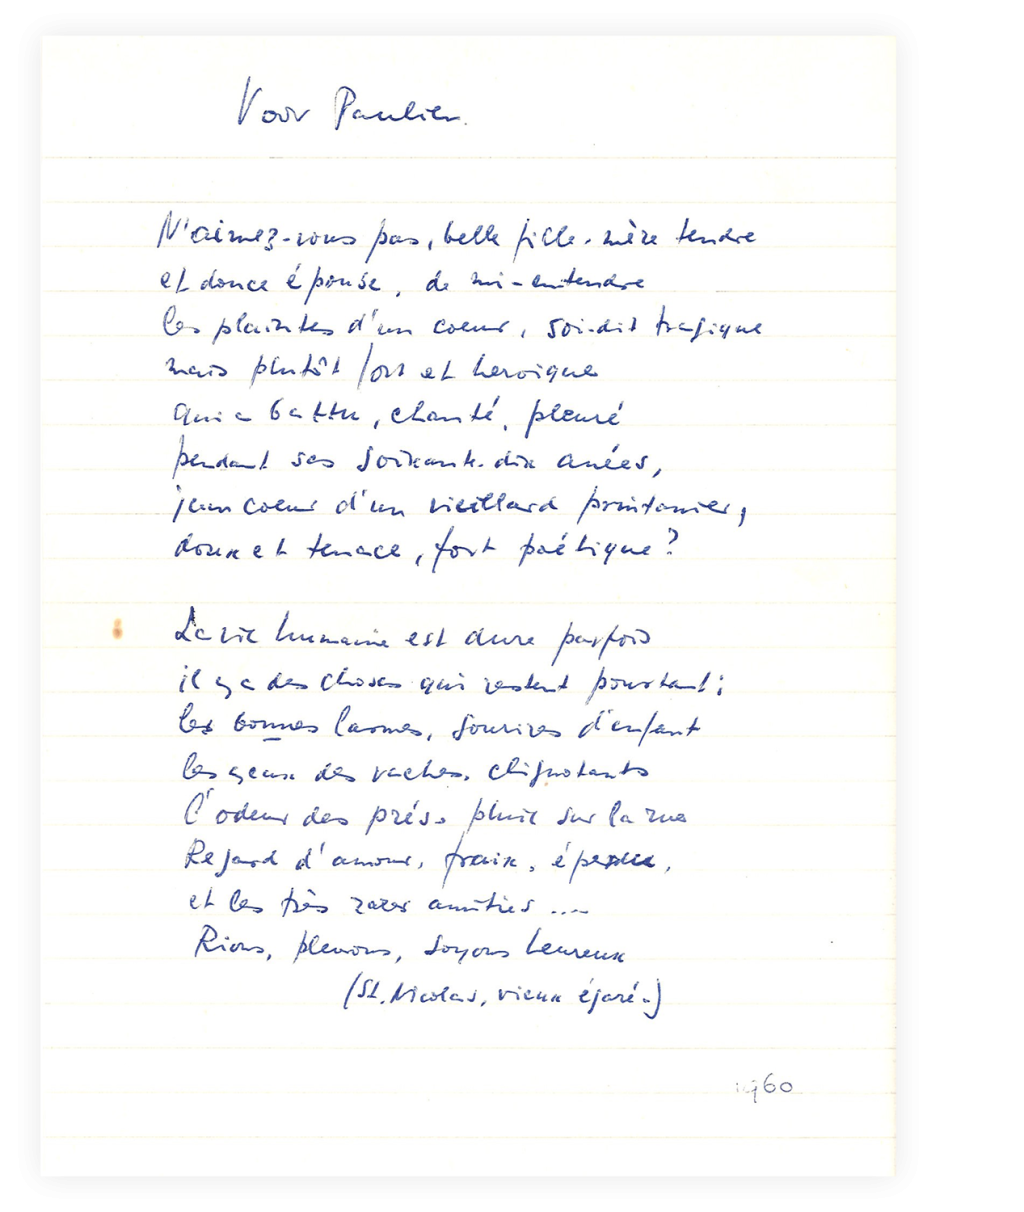 Voor Paulien.
N'aimez-vous pas, belle fille, mère tendre
et douce épouse, de mi-entendre
les plaintes d'un coeur, soi-dit tragique
mais plutôt fort et heroique
qui a battu, chanté, pleuré
pendant ses soixante-dix anées,
jeun coeur d'un vieillard printanier,
doux et tenace, fort poétique?
La vie humaine est dure parfois
il y a des choses qui restent pourtant:
les bonnes larmes, sourires d'enfant
les yeux des vaches, clignotants
l'odeur des prés, pluie sur la rue
Regard d'amour, fraix, éperdu,
et les très rares amitiés ....
Rions, pleurons, soyons heureux
(St. Nicolas, vieux égaré.)
1960